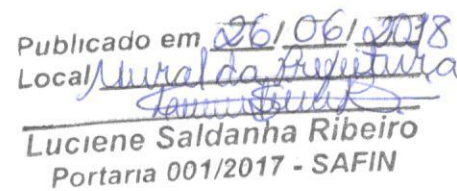 Publicado em 26/06/2018
Local Mural da Prefeitura
Luciene Saldanha Ribeiro
Portaria 001/2017 - SAFIN